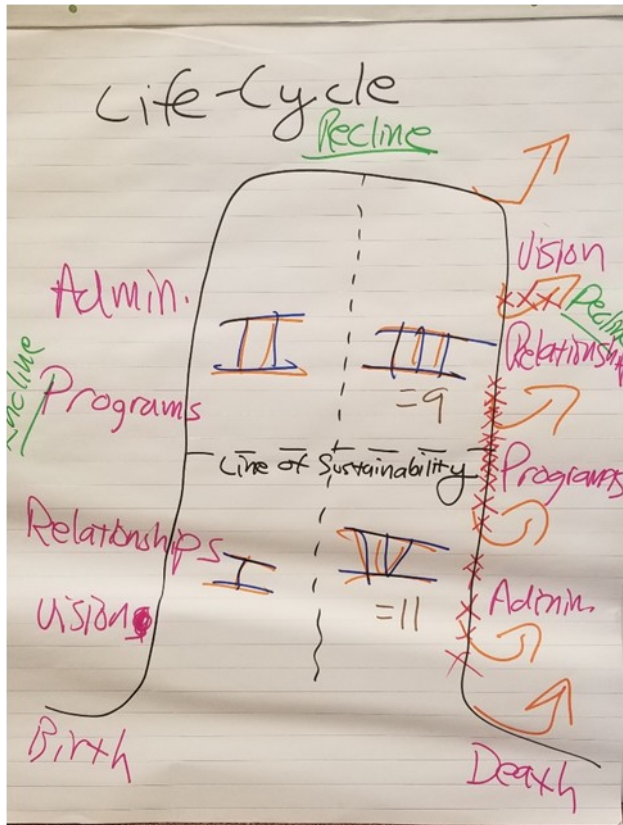 Life-Cycle
Recline
Admin.
Incline
Programs
Relationships
Vision
Birth
Line of Sustainability
=9
=11
Vision
Relationship
Programs
Admin.
Death